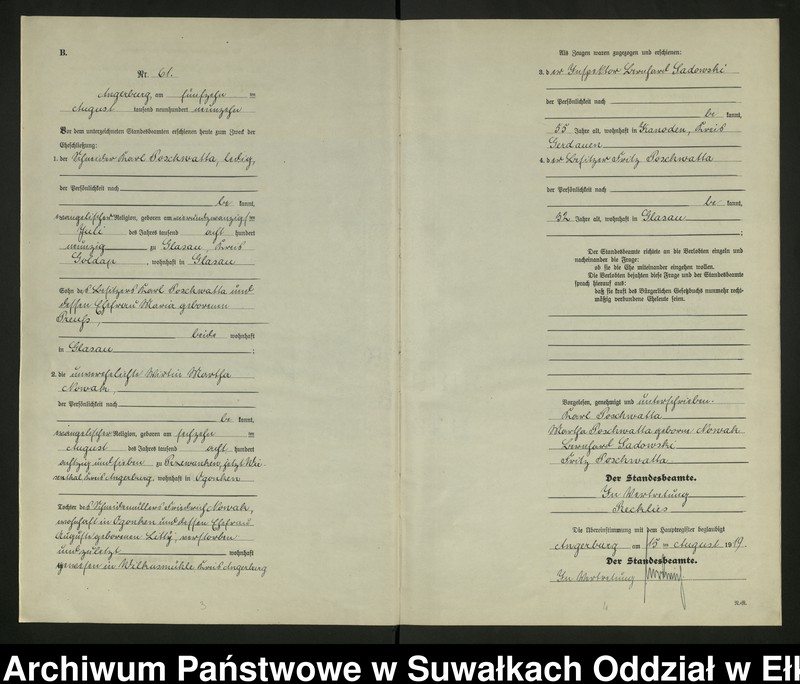 B.
Nr. 61.
Angerburg, am fünfzehn ten
August tausend neunhundert neunzehn
Vor dem unterzeichneten Standesbeamten erschienen heute zum Zweck der
Eheschließung:
1. der Schneider Karl Poschwatta, ledig,
der Persönlichkeit nach
be kannt,
evangelischer Religion, geboren am zwanzig ten
Juli des Jahres tausend acht hundert
neunzig zu Glasau, Kreis
Goldap, wohnhaft in Glasau
Sohn des Besitzers Karl Poschwatta und
dessen Ehefrau Maria geborenen
Preuß,
beide wohnhaft
in Glasau ;
2. die unverehelichte Wirtin Martha
Nowak,
der Persönlichkeit nach
be kannt,
evangelischer Religion, geboren am sechzehn ten
August des Jahres tausend acht hundert
achtzig und sieben zu Przerwanken, jetzt Wie-
senthal Kreis Angerburg, wohnhaft in Ogonken
Tochter des Schneidemüllers Friedrich Nowak,
wohnhaft in Ogonken und dessen Ehefrau
Auguste geborenen verstorben
und zuletzt wohnhaft
gewesen in Wilkusmühle Kreis Angerburg
3
Als Zeugen waren zugezogen und erschienen:
3. der Inspektor Bernhard Sadowski
der Persönlichkeit nach
be kannt,
55 Jahre alt, wohnhaft in Kanoden, Kreis
Gerdauen
4. der Besitzer Fritz Poschwatta
der Persönlichkeit nach
be kannt,
32 Jahre alt, wohnhaft in Glasau
;
Der Standesbeamte richtete an die Verlobten einzeln und
nacheinander die Frage:
ob sie die Ehe miteinander eingehen wollen.
Die Verlobten bejahten diese Frage und der Standesbeamte
sprach hierauf aus:
daß sie kraft des Bürgerlichen Gesetzbuchs nunmehr recht-
mäßig verbundene Eheleute seien.
Vorgelesen, genehmigt und unterschrieben.
Karl Poschwatta
Martha Poschwatta geborne Nowak
Bernhard Sadowski
Fritz Poschwatta
Der Standesbeamte.
In Vertretung
Recklies
Die Übereinstimmung mit dem Hauptregister beglaubigt
Angerburg am 15 ten August 1919.
Der Standesbeamte.
In Vertretung
4
R.-R.
Archiwum Państwowe w Suwałkach Oddział w Ełk